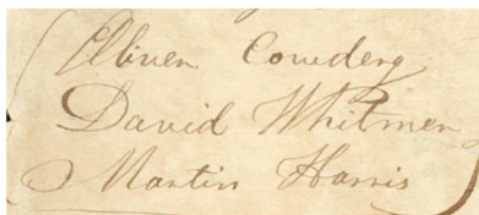 Oliver Cowdery
David Whitmer
Martin Harris